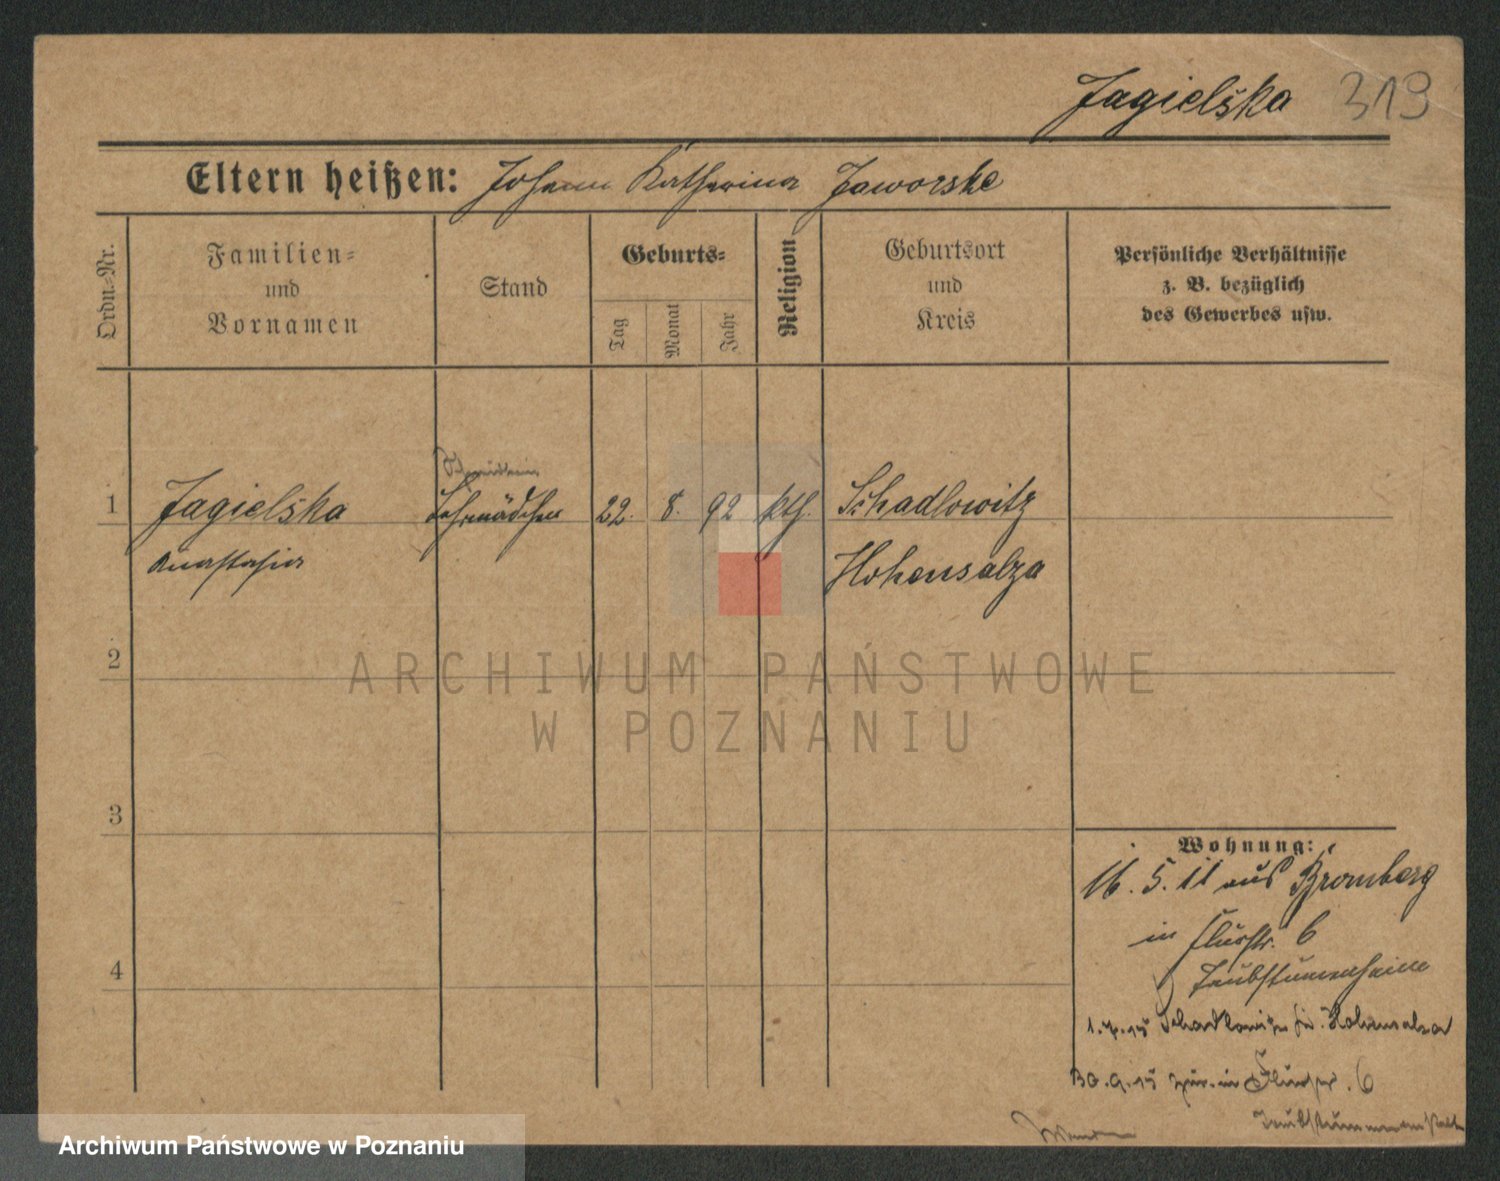 Jagielska 319
Eltern heißen: Johann Katharina Jaworske
Ordn.-Nr.
Familien-
und
Vornamen
Stand
Geburts-
Tag
Monat
Jahr
Religion
Geburtsort
und
Kreis
Persönliche Verhältnisse
z. B. bezüglich
des Gewerbes usw.
1 Jagielska Lehrmädchen 22. 8. 92 kth. Schadlowitz
Anastasia Hohensalza
2
ARCHIWUM PAŃSTWOWE
W POZNANIU
3
Wohnung:
16. 5. 11 aus Bromberg
in Flurstr. 6
Taubstummenheim
4
1.7.15 Schadlowitz Kr. Hohensalza
30.9.15 zur. in Flurstr. 6
Taubstummenanstalt
Archiwum Państwowe w Poznaniu